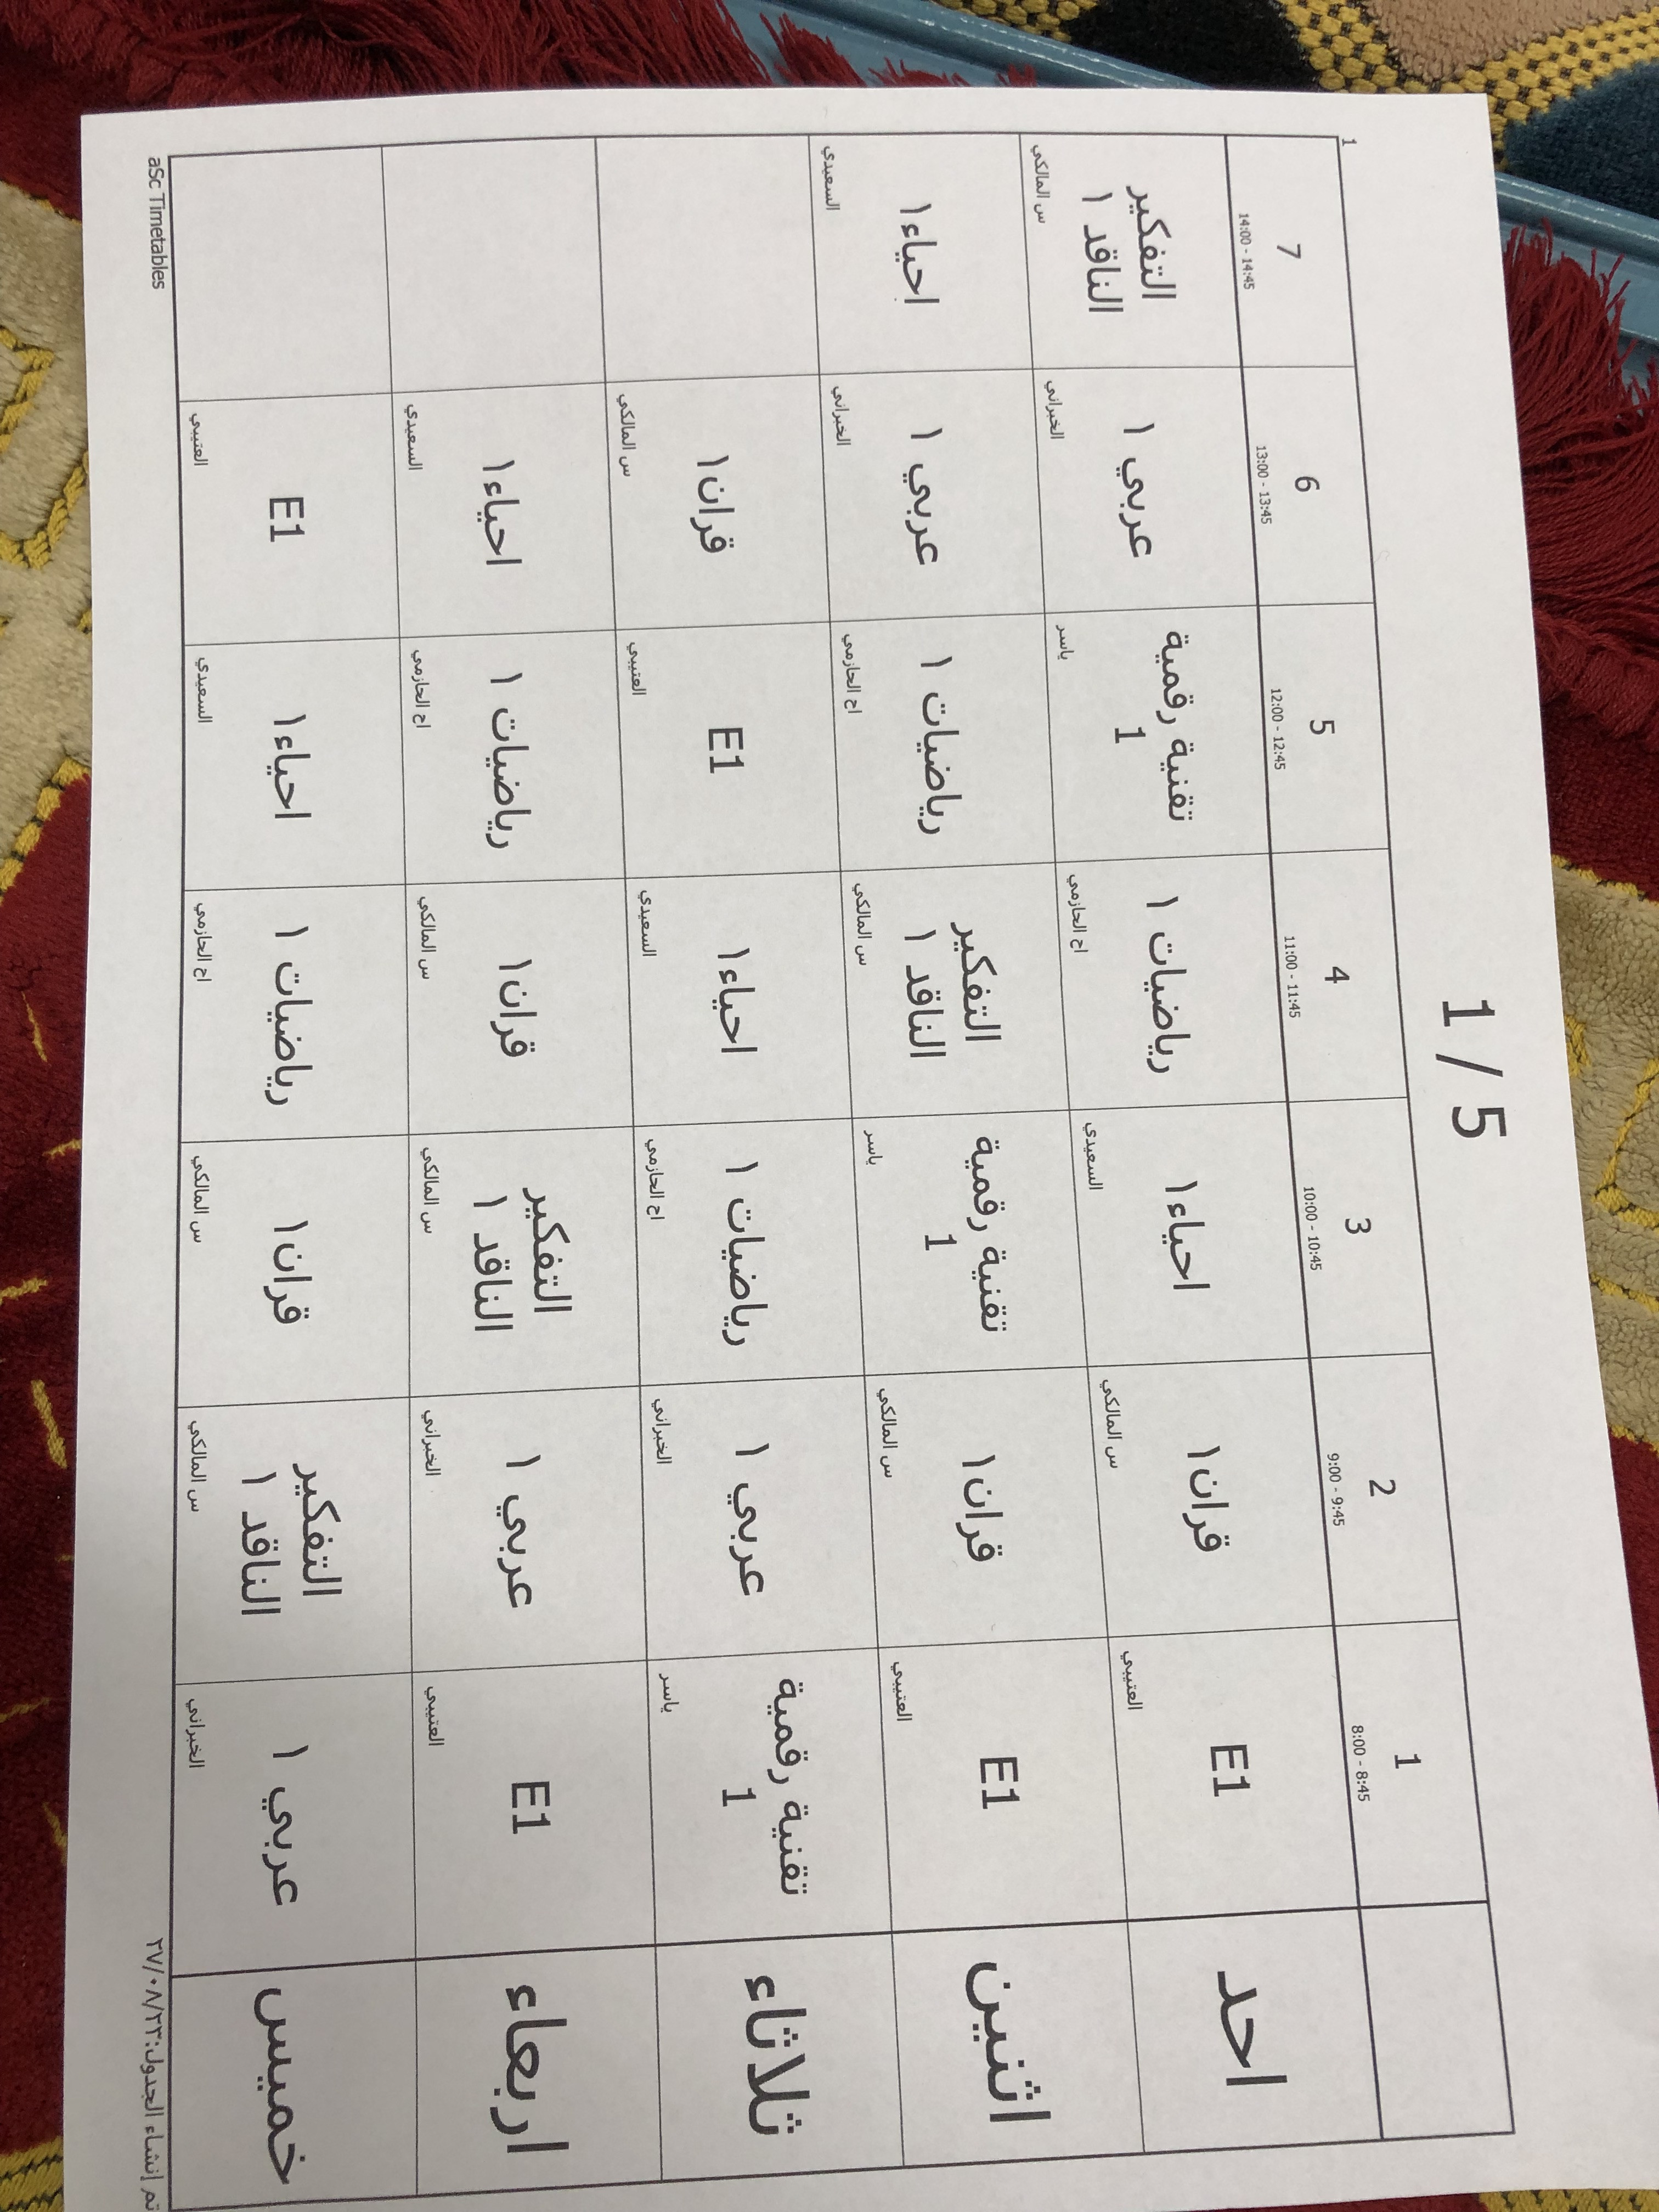 1 / 5
1
1
8:00 - 8:45
2
9:00 - 9:45
3
10:00 - 10:45
4
11:00 - 11:45
5
12:00 - 12:45
6
13:00 - 13:45
7
14:00 - 14:45
احد
E1
العتيبي
قران١
س المالكي
احياء١
السعيدي
رياضيات ١
اح الحازمي
تقنية رقمية
1
ياسر
عربي ١
الخبراني
التفكير
الناقد ١
س المالكي
اثنين
E1
العتيبي
قران١
س المالكي
تقنية رقمية
1
ياسر
التفكير
الناقد ١
س المالكي
رياضيات ١
اح الحازمي
عربي ١
الخبراني
احياء١
السعيدي
ثلاثاء
تقنية رقمية
1
ياسر
عربي ١
الخبراني
رياضيات ١
اح الحازمي
احياء١
السعيدي
E1
العتيبي
قران١
س المالكي
اربعاء
E1
العتيبي
عربي ١
الخبراني
التفكير
الناقد ١
س المالكي
قران١
س المالكي
رياضيات ١
اح الحازمي
احياء١
السعيدي
خميس
عربي ١
الخبراني
التفكير
الناقد ١
س المالكي
قران١
س المالكي
رياضيات ١
اح الحازمي
احياء١
السعيدي
E1
العتيبي
تم إنشاء الجدول:٢٧/٠٨/٢٣
aSc Timetables